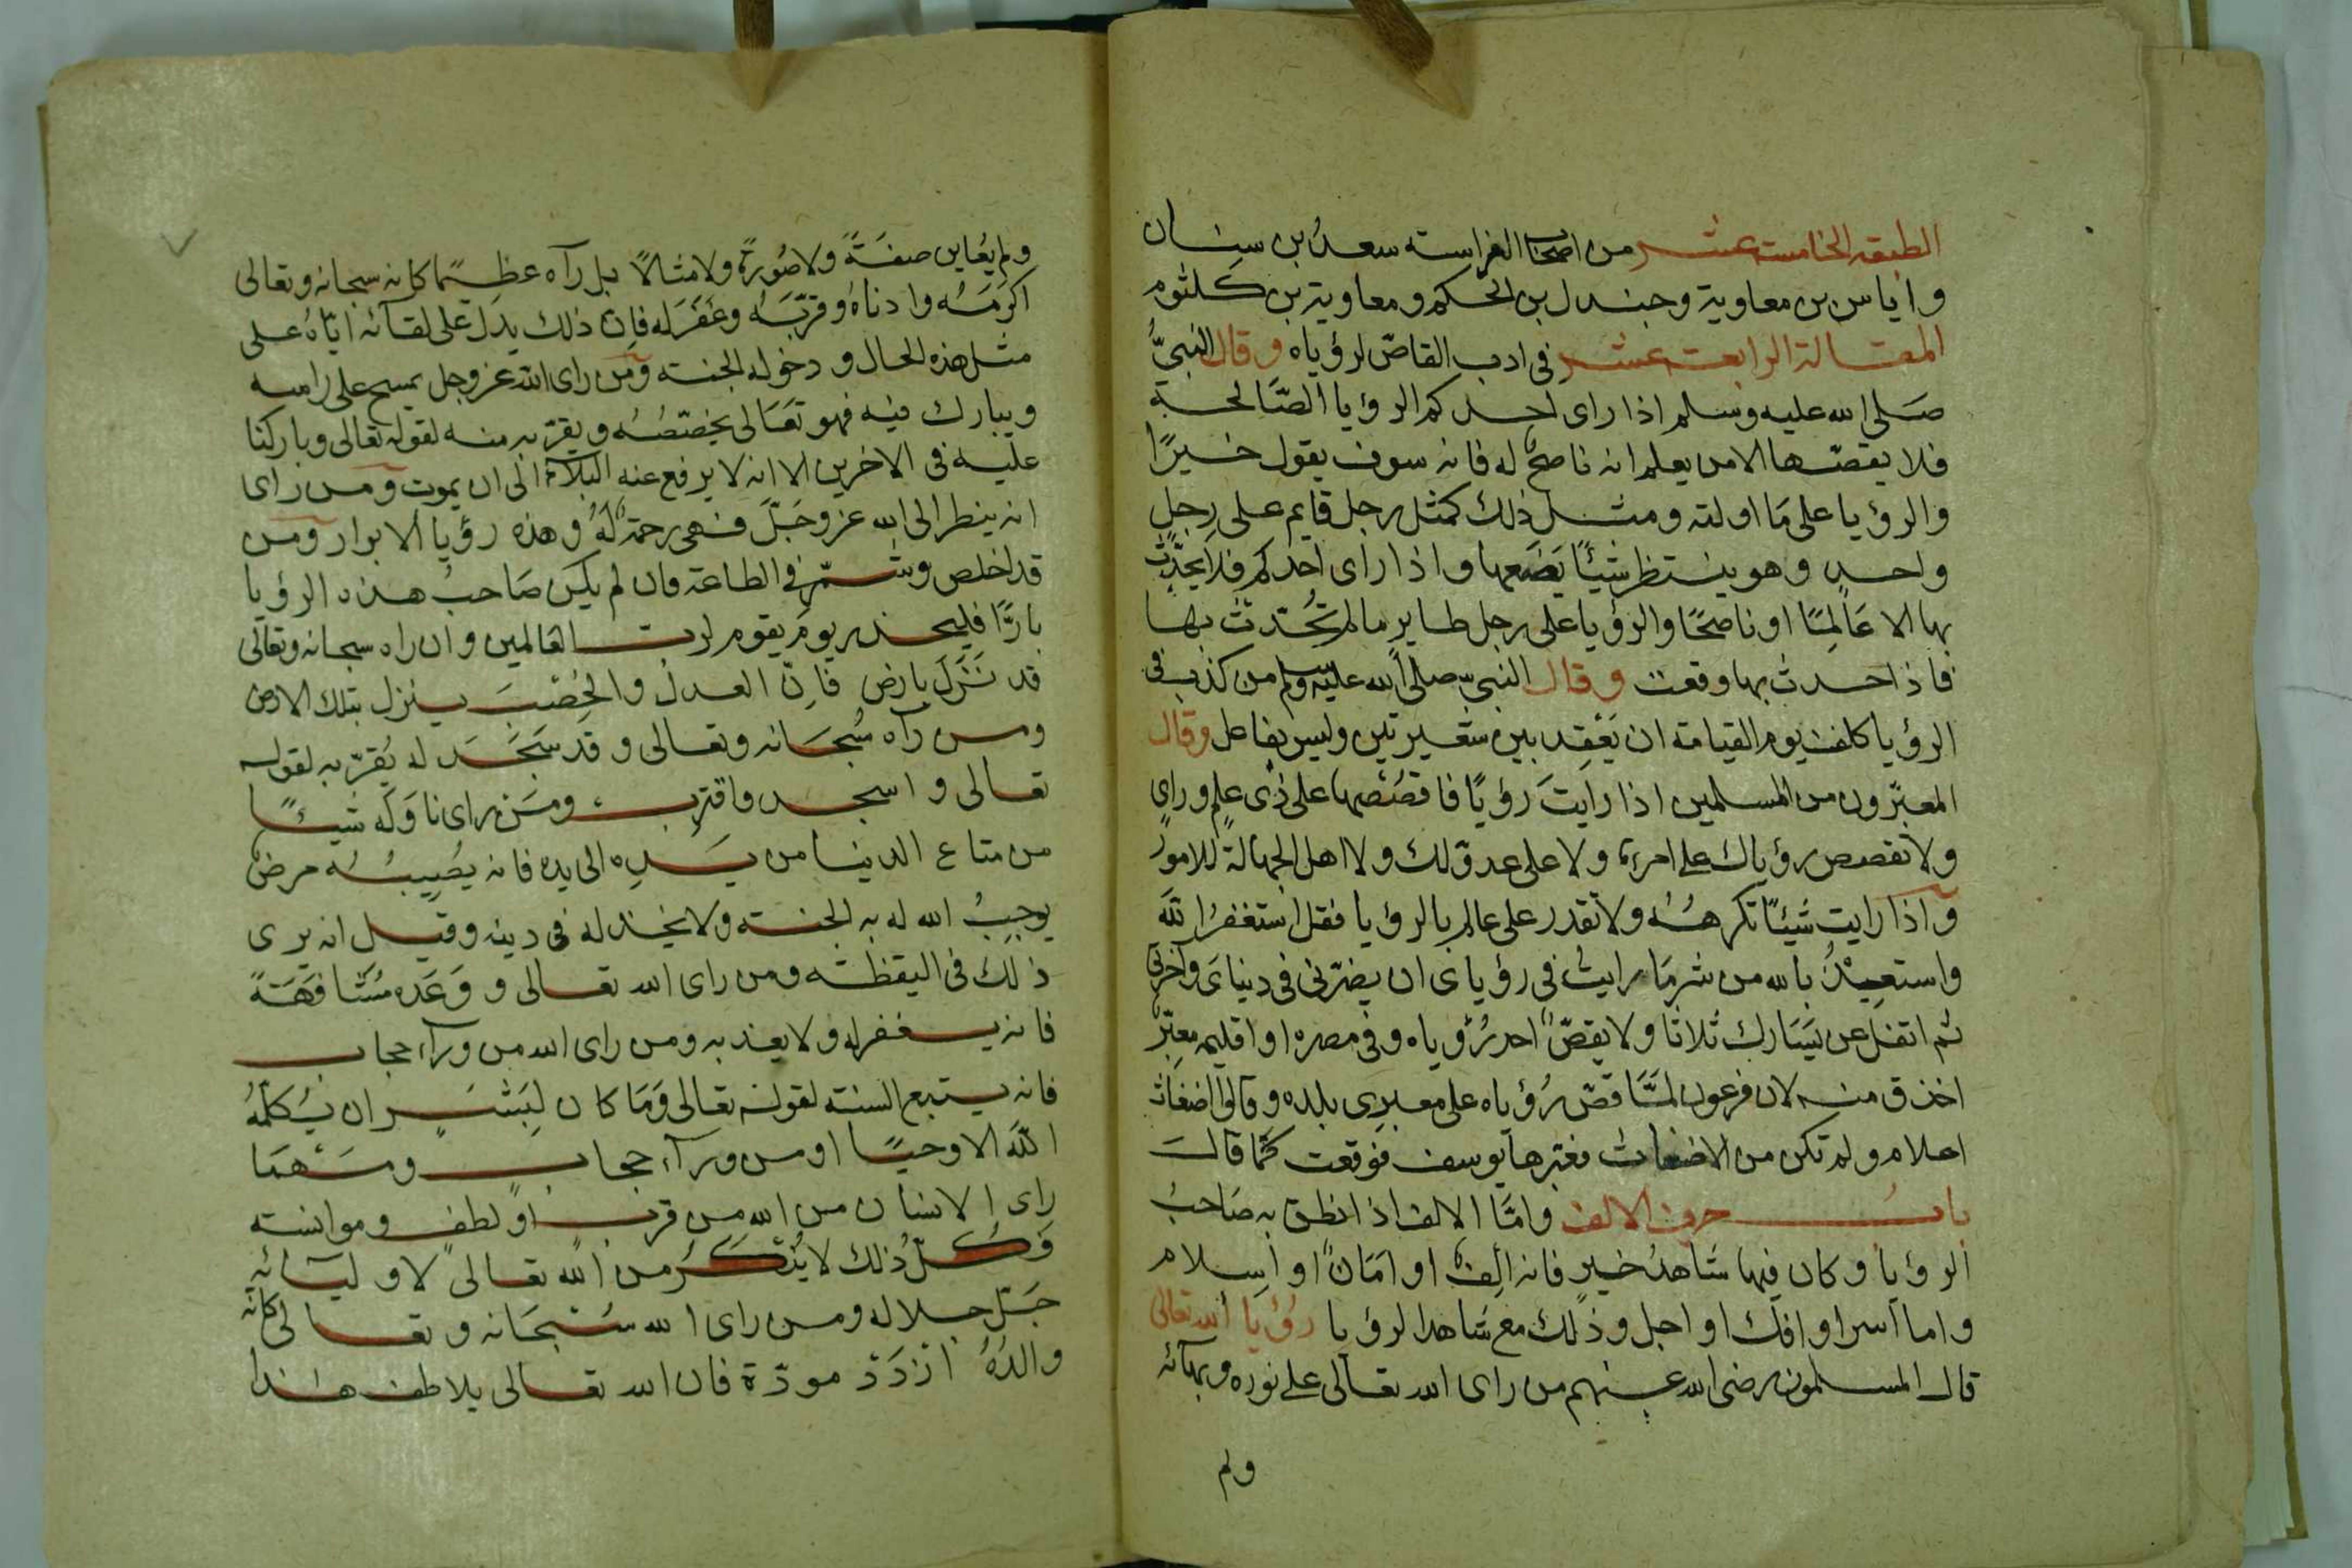 الطبقه الخامسة عشر من اصحاب الفراسته سعدُ بن سِنان
و اياس بن معاوية و جندل بن الحكم و معاوية بن كلثوم
المقالة الرابعة عشر فى ادب القاصّ لرؤياه وقال النبىُّ
صَلى الله عليه وسلم اذا راى احدكم الرؤيا الصَّالحة
فلا يقصّها الا من يعلم انه ناصحٌ له فانه سوف يقول خيرًا
والرؤيا على مَا اولته ومثل ذلك كمثل رجل قايم على رجلٍ
واحدٍ وهو ينتظر شيئًا يَضَعها واذا راى احدكم فلا يحَدِّث
بها الا عَالِمًا او ناصحًا والرؤيا على رجل طايرٍ ما لم تُحدث بها
فاذا حدث بها وقعت وقال النبىّ صلى الله عليه وسلم من كذب فى
الرؤيا كلف يوم القيامة ان يَعْقِد بين شعيرتين وليس بفاعل وقال
المعبّرون من المسلمين اذا رايتَ رؤيًا فاقصُصْها على ذى علمٍ وراىٍ
ولا تقصص رؤياك على امرءة ولا على عدوّ لك ولا اهل الجهالة للامور
واذا رايت شيئًا تكرهُه ولا تقدر على عالم بالرؤيا فقل استغفرُ اللّه
واستعيذُ بالله من شر مَا رايتُ فى رؤياى ان يضرّنى فى دنياىَ وآخرتى
ثم اتفل عن يَسَارك ثلاثا ولا يقصّ احد رُؤياه وفى مصره او اقليمه معبّرٌ
احذق منه لان فرعون لمَّا قصّ رُؤياه على معبرِى بلده وقالوا اضغاث
احلام ولم تكن من الاضغاث فعبّرها يوسف فوقعت كَما قالَ
بابُ حرف الالف وامَّا الالف اذا نطق به صَاحبُ
الرؤيا وكان فيها شاهدُ خيرٍ فانه الِفٌ او امَانٌ او اسلام
واما اسر او افك او اجل وذلك مع شاهد الرؤيا رؤيا الله تعالى
قال المسلمون رضى الله عنهم من راى الله تعالى على نوره وبهآئه
ولم
ولم يُعاين صفةً ولا صُورةً ولا مثالًا بل رآه عظيمًا كانه سبحانه وتعالى
اكرَمَهُ وادناهُ وقرّبَه وغفَرَ له فاِن ذلك يدل على لقآئه ايّاهُ على
مثل هذه الحال ودخوله الجنة ومن راى اللّه عز وجل يمسح على راسه
ويبارك فيه فهو تعَالى يخصّصُه ويقرّبه منه لقوله تعالى وباركنا
عليه فى الاخرين الا انه لا يرفع عنه البلآء الى ان يموت ومن راى
انه ينظر الى الله عز وجَلّ فهى رحمةٌ لهُ وهذه رؤيا الابرار ومن
قد اخلص وشمّر فى الطاعة فان لم يكن صَاحبُ هذه الرؤيا
بارًّا فليحذر يومَ يقوم لرب العالمين وان راه سبحانه وتعالى
قد نَزَلَ بارض فاِنّ العدل والخِصْبَ ينزل بتلك الارض
ومن رآه سُبحَانه وتعالى وقد سَجَد له يُقرّبه لقوله
تعالى واسجد واقترب ومَن راى ناوَلَه شيئًا
من متاع الدنيا من يَدِه الى يده فانه يصُيبُه مرضٌ
يوجبُ الله له به الجنة ولا يخذله فى دينه وقيل انه يرى
ذلك فى اليقظة ومن راى الله تعالى ووَعَده مُشافَهَةً
فانه يغفر له ولا يعذبه ومن راى الله من ورآء حجاب
فانه يتبع السنة لقوله تعالى وَمَا كان لِبَشَرٍ ان يُكلّمهُ
اللّه الا وحيًا او من ورآء حجاب ومَهْمَا
راى الانسان من الله من قربٍ او لطفٍ وموانسة
فَكلّ ذلك لا يُنكَرُ من اللّه تعالى لاوليآئِهِ
جَلّ جلاله ومن راى الله سُبحَانه وتعالى كانه
والدُهُ ازدَدَ مودّة فان الله تعالى يلاطف هذا